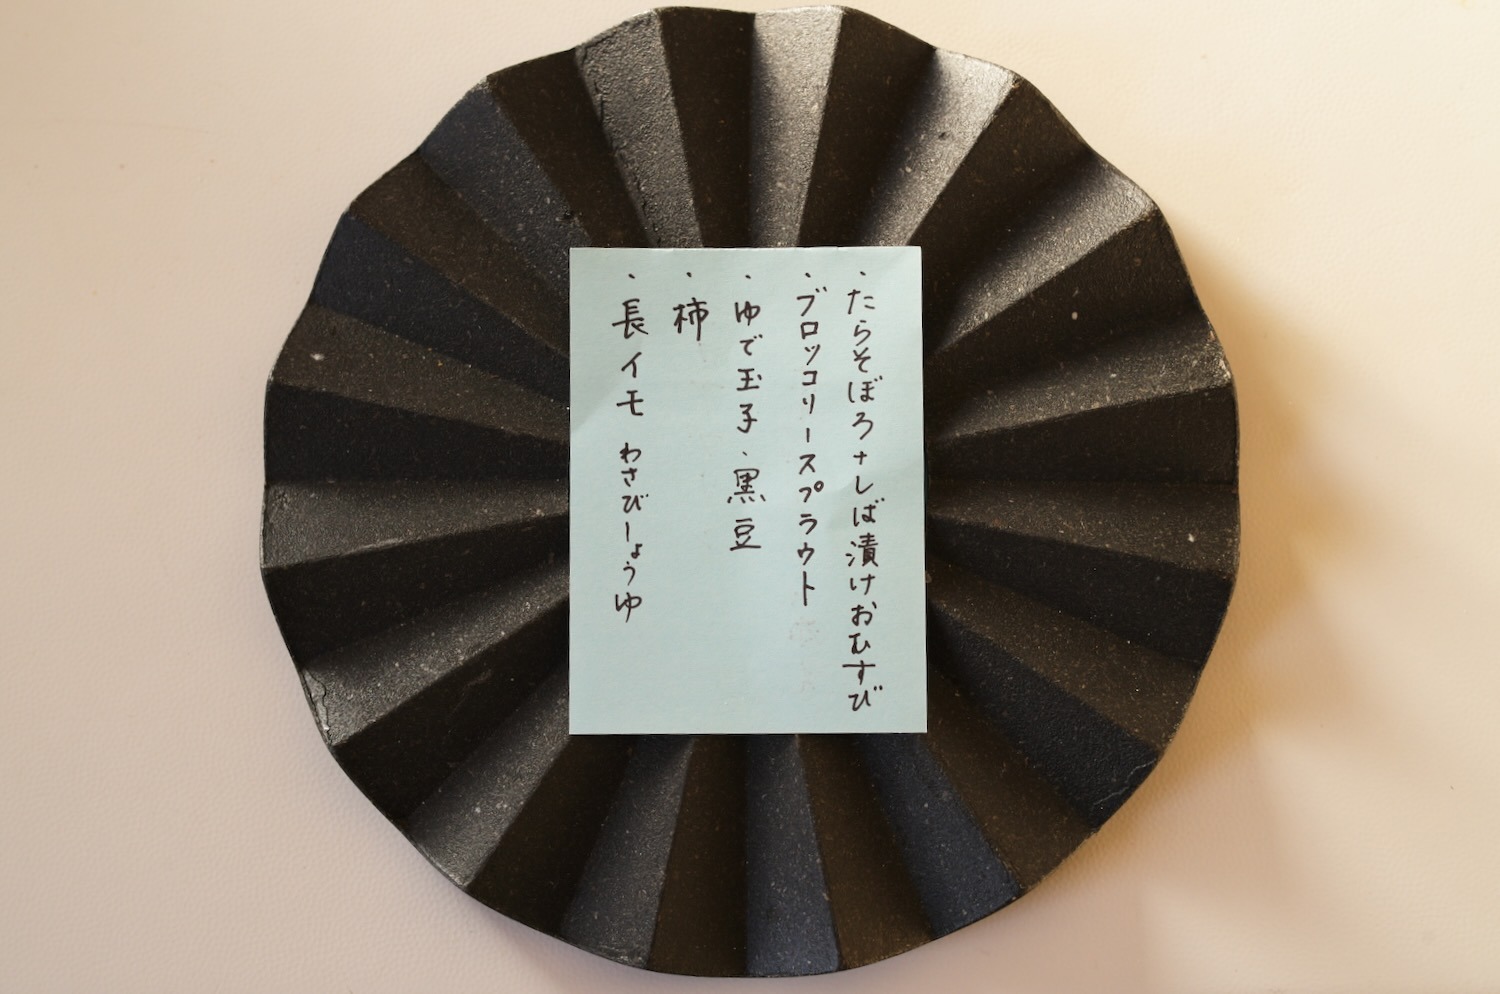 ・たらそぼろ+しば漬けおむすび
・ブロッコリースプラウト
・ゆで玉子・黒豆
・柿
・長イモ わさびしょうゆ